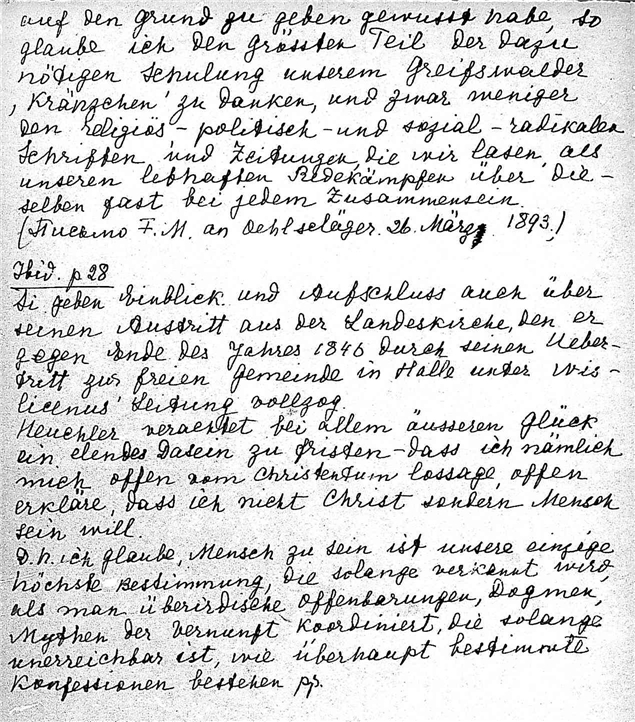 auf den Grund zu geben gewusst habe, so
glaube ich den grössten Teil der dazu
nötigen Schulung unserem Greifswalder
, Kränzchen' zu danken, und zwar weniger
den religiös - politisch - und sozial - radikalen
Schriften und Zeitungen, die wir lasen, als
unseren lebhaften Redekämpfen über die-
selben fast bei jedem Zusammensein.
(Письмо F. M. an Oehlschläger. 26. März 1893.)
Ibid. p 28
Si geben Einblick und Aufschluss auch über
seinen Austritt aus der Landeskirche, den er
gegen Ende des Jahres 1846 durch seinen Ueber-
tritt zur freien Gemeinde in Halle unter Wis-
licenus' Leitung vollzog.
Heuchler verachtet bei allem äusseren Glück
ein elendes Dasein zu fristen - dass ich nämlich
mich offen vom Christentum lossage, offen
erkläre, dass ich nicht Christ sondern Mensch
sein will.
D. h. ich glaube, Mensch zu sein ist unsere einzige
höchste Bestimmung, die solange verkannt wird,
als man überirdische Offenbarungen, Dogmen,
Mythen der Vernunft koordiniert, die solange
unerreichbar ist, wie überhaupt bestimmte
Konfessionen bestehen pp.